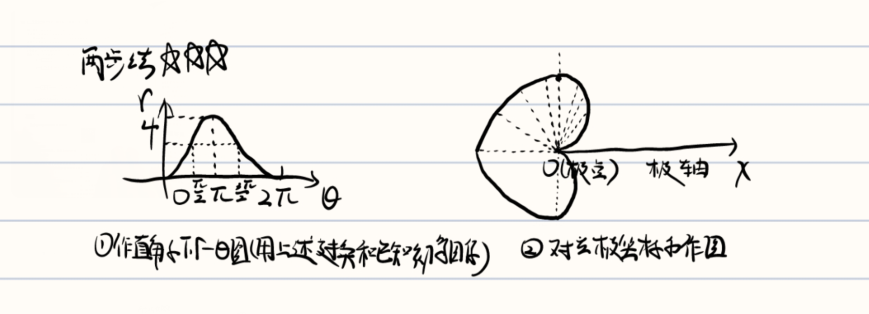 两步走☆☆☆
r
4
0 π/2 π 3π/2 2π θ
O(极点) 极轴 X
①作直角系下r-θ图(用上述变换和已知初等图形) ②对应极坐标系作图